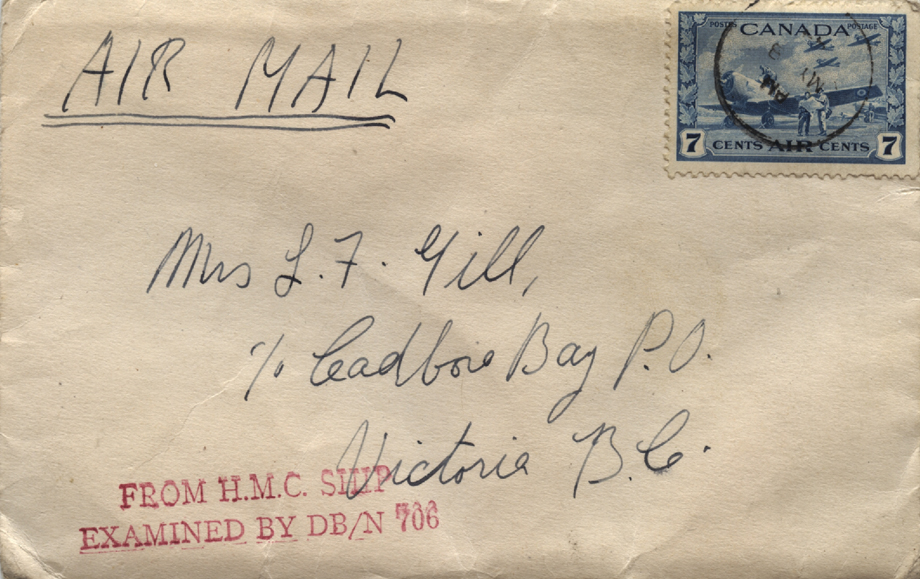 AIR MAIL
POSTES CANADA POSTAGE
AM
MY
3
7 CENTS AIR CENTS 7
Mrs L. F. Gill,
c/o Cadboro Bay P.O.
Victoria B.C.
FROM H.M.C. SHIP
EXAMINED BY DB/N 706